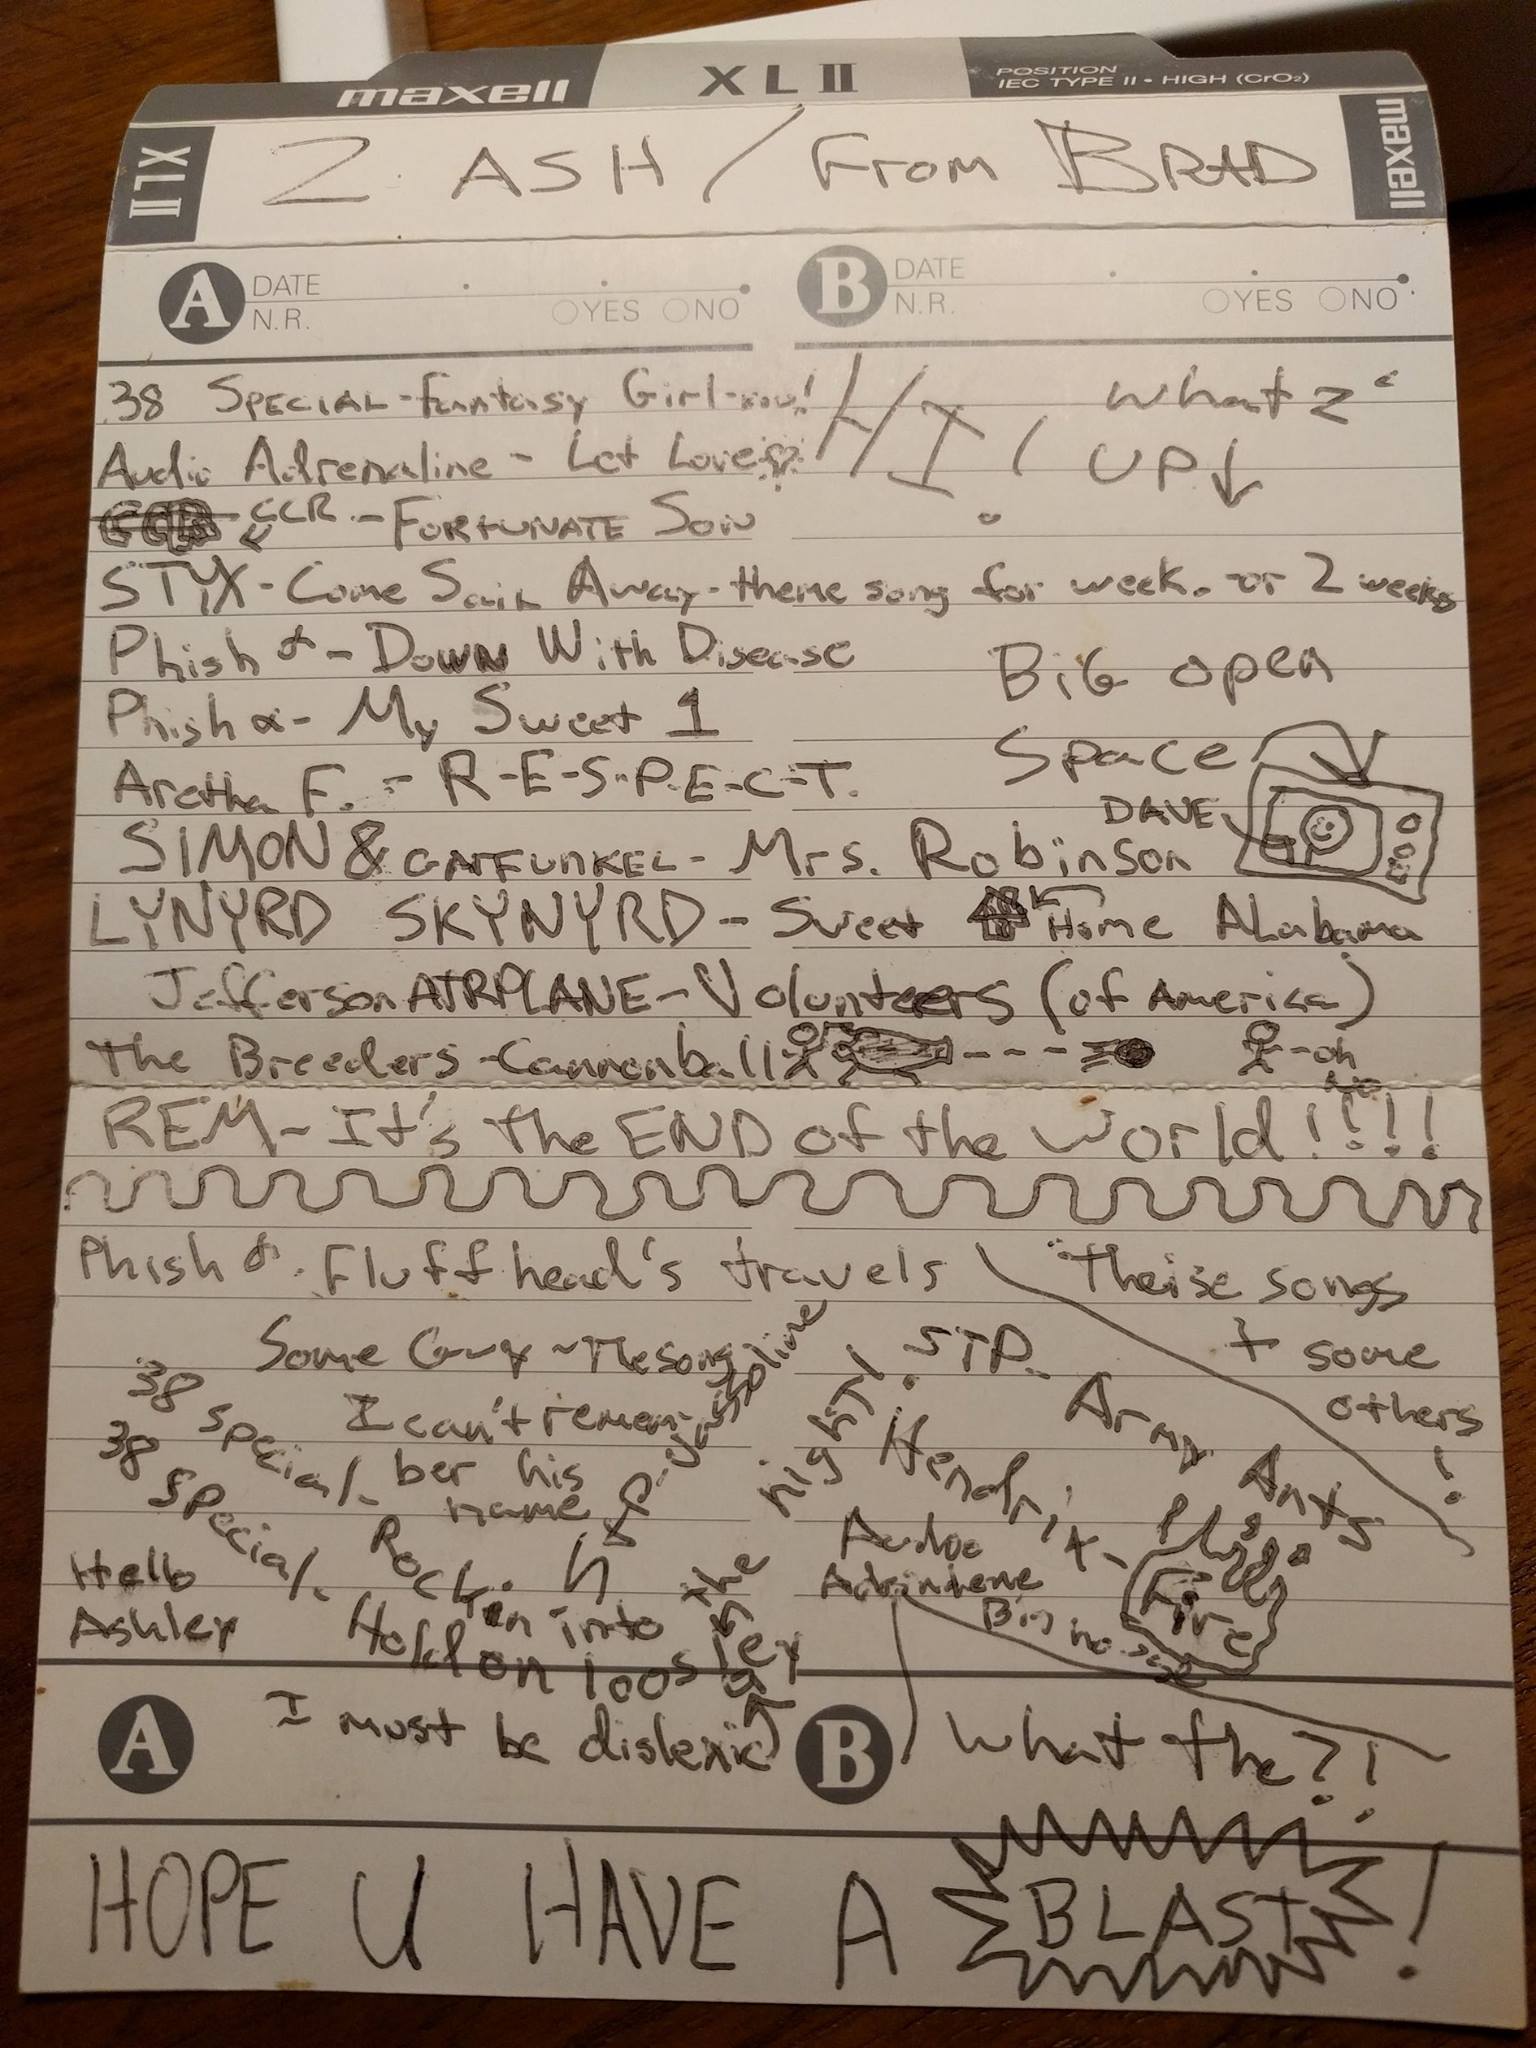 maxell XLII POSITION
IEC TYPE II • HIGH (CrO₂)
XLII
2 ASH / From BRAD
maxell
A DATE
N.R. YES NO
B DATE
N.R. YES NO
.38 SPECIAL-Fantasy Girl-
HI!
what z
UP
Audio Adrenaline - Let Love
CCR - FORTUNATE SON
STYX - Come Sail Away - theme song for week. or 2 weeks
Phish - DOWN With Disease
Big open
Phish - My Sweet 1
Space
Aretha F. - R-E-S-P-E-C-T.
DAVE
SIMON & GARFUNKEL - Mrs. Robinson
LYNYRD SKYNYRD - Sweet Home Alabama
Jefferson AIRPLANE - Volunteers (of America)
The Breeders - Cannonball
oh
no
REM - It's the END of the World!!!!
Phish. Fluffhead's travels
Theise songs
+ some
others!
Some Guy ~ The song
I can't remem-
ber his
name
38 special. Rockin into the night!
38 special. Hold on loosley
STP.
Army Ants
Hendrix - Fire
Audio
Adrinilene
Big house
Hello
Ashley
A I must be dislexic
B What the?!
HOPE U HAVE A BLAST!